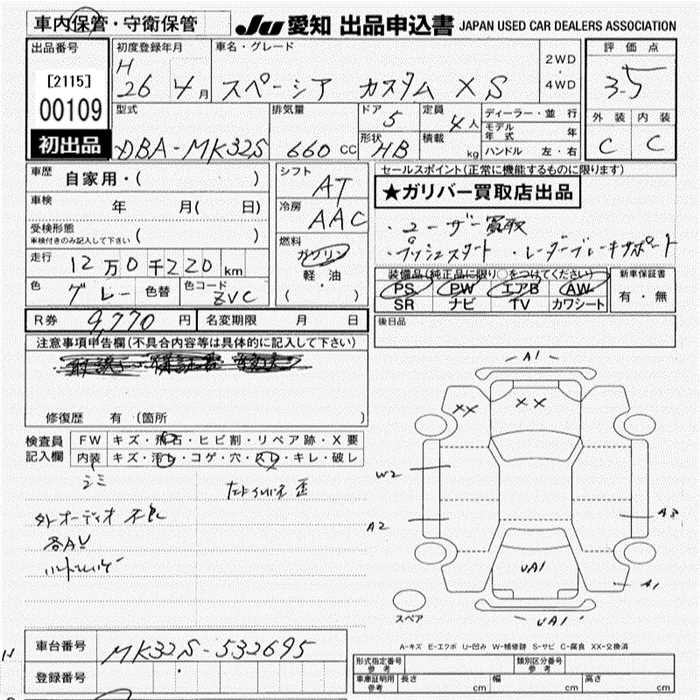 車内保管・守衛保管
JU 愛知 出品申込書 JAPAN USED CAR DEALERS ASSOCIATION
出品番号
[2115]
00109
初出品
初度登録年月
H
26 4月
車名・グレード
スペーシア カスタム XS
2WD
・
4WD
評価点
3.5
外装 内装
C C
型式
DBA-MK32S
排気量
660 CC
ドア
5
定員
4人
形状
HB
積載
kg
ディーラー・並行
モデル年式 年
ハンドル 左・右
車歴 自家用・( )
車検 年 月( 日)
受検形態
車検付きのみ記入して下さい ( )
走行 12万0千220km
色 グレー 色替 色コード ZVC
シフト
AT
冷房
AAC
燃料
ガソリン
軽・油
( )
セールスポイント(正常に機能するものに限ります)
★ガリバー買取店出品
・ユーザー買取
・プッシュスタート ・レーダーブレーキサポート
装備品(純正品に限り○をつけてください)
PS PW エアB AW
SR ナビ TV カワシート
新車保証書
有・無
R券 9,770円 名変期限 月 日
後日品
注意事項申告欄(不具合内容等は具体的に記入して下さい)
修復歴 有 (箇所 )
検査員
記入欄
FW キズ・飛石・ヒビ割・リペア跡・X要
内装 キズ・汚レ・コゲ・穴・スレ・キレ・破レ
シミ
外オーディオ 不良
A1
XX
XX
W2
A2
A3
UA1
A1
UA1
スペア
A-キズ E-エクボ U-凹み W-補修跡 S-サビ C-腐食 XX-交換済
車台番号 MK32S-532695
登録番号
形式指定番号
参考
類別区分番号
参考
車庫証明用
参考
長さ cm 幅 cm 高さ cm